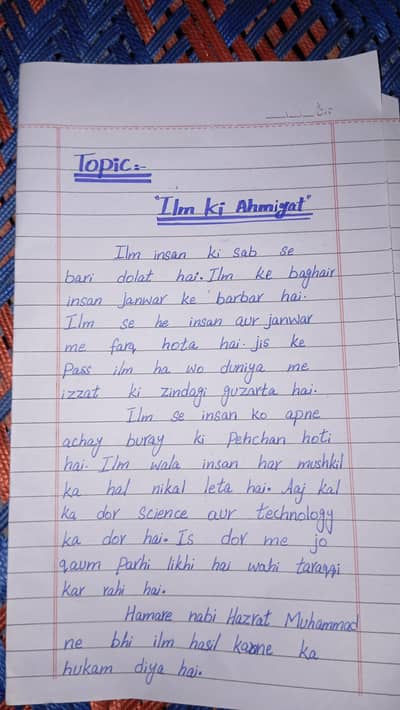 Topic:-
"Ilm ki Ahmiyat"
Ilm insan ki sab se
bari dolat hai. Ilm ke baghair
insan janwar ke barbar hai.
Ilm se he insan aur janwar
me farq hota hai. jis ke
Pass ilm ha wo duniya me
izzat ki zindagi guzarta hai.
Ilm se insan ko apne
achay buray ki Pehchan hoti
hai. Ilm wala insan har mushkil
ka hal nikal leta hai. Aaj kal
ka dor science aur technology
ka dor hai. Is dor me jo
qaum Parhi likhi hai wahi taraqqi
kar rahi hai.
Hamare nabi Hazrat Muhammad
ne bhi ilm hasil karne ka
hukam diya hai.